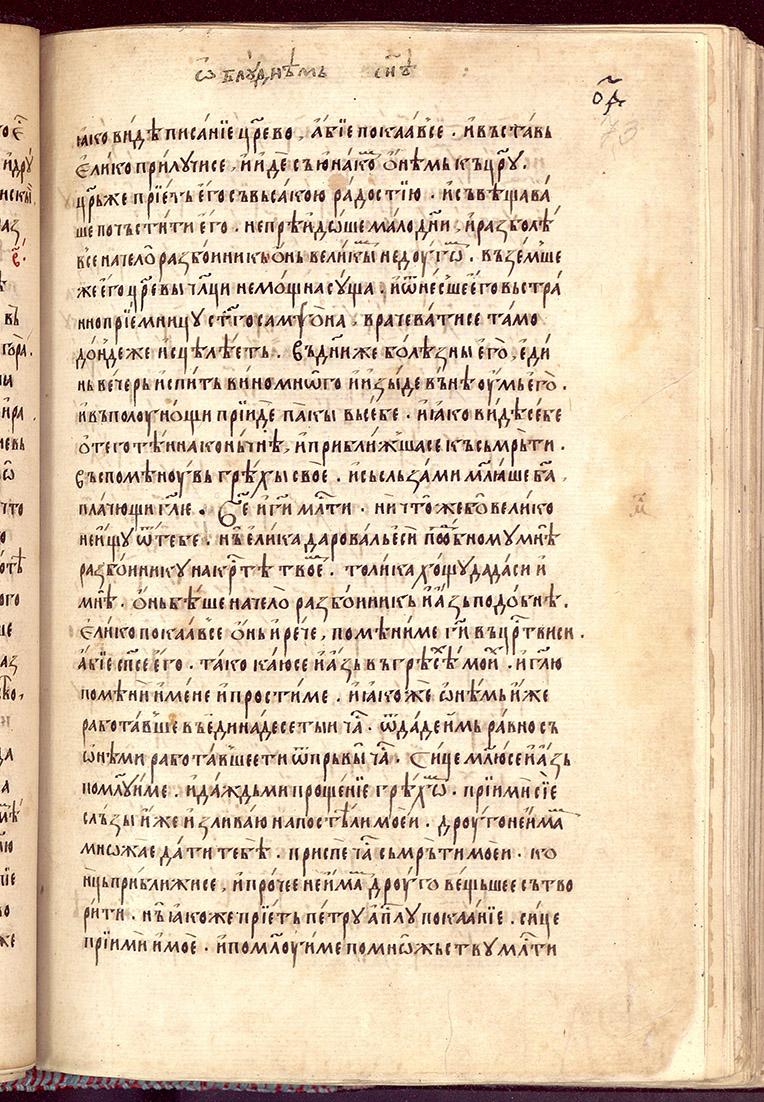 ѿ блꙋднѣмь сн҃ѣ
ѻ҃д
73
ꙗко видѣ писанїе цр҃ево , абїе покаавсе . и въставь
елико прилꙋчисе , и иде съ юнакѡ онѣмь къ цр҃ꙋ .
цр҃ь же прїеть его съ вьсакою радостїю . и съвѣщава
ше почьстити его . не прѣидоше мало дн҃и , и разболѣ
все начело разбоиникь онь великы недоугѡ . въземше
же его цр҃евы чл҃ци немощна сꙋща . и ѿнесше его въ стра
ннопрїемницꙋ ст҃го самѱона , врачеватисе тамо
дондеже исцѣлѣеть . Въ дн҃и же болѣзны его , еди
нь вечерь испить вино мнѡго и изыде вънь оумь его .
и въ полоунощи прїиде пакы вь себе . и ꙗко видѣ себе
отеготѣнна конычнѣ , и приближшасе къ сьмрьти .
Въспоменоувь грѣхы свое . и сь сльзами млꙗше ба҃ ,
плачющи гл҃ю . Бж҃е и ги҃ мл҃ти . ничтоже бо велико
не ищꙋ ѿ тебе . нь елика даровальеси побномꙋ мнѣ
разбоиникꙋ на крт҃ѣ твое . толика хощꙋ да даси и
мнѣ . онь бѣше начело разбоиникь и азь подобнѣ .
елико покаавсе онь и рече , помѣни ме ги҃ въ цр҃тви си .
абїе сп҃се его . тако каюсе и азь въ грѣсѣ мои . и гл҃ю
помени и мене и прости ме . и ꙗкоже ѡнѣмь иже
работавше въ единадесетыи ча . ѿдаде имь равно съ
ѡнѣми работавшеети ѿ прьвы ча . Сице млюсе и азь
помл҃ꙋи ме . и даждь ми прощенїе грѣхѡ . прїими сїе
сльзы иже изливаю на постѣли моеи . дроуго не има
мнѡжае дати тебѣ . приспе ча сьмрьти моеи . ко
нць приближисе , и прочее не има дроуго вещьшее сътво
рити . нь ꙗкоже прїеть петрꙋ ап҃лꙋ покаанїе . сице
прїими и мое . и помл҃оуи ме по мнѡжьствꙋ мл҃ти